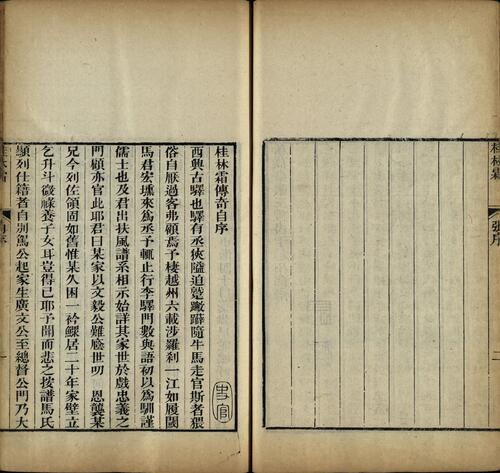 桂林霜
張序
二
桂林霜傳奇自序
西興古驛也驛有丞狹隘迫蹙隨牛馬走官斯者猥
俗自厭過客弗顧焉予棲越州六載涉羅刹一江如履閾
馬君宏壎來爲丞予輒止行李驛門數與語初以爲馴謹
儒士也及君出扶風譜系相示始詳其家世於戲忠義之
門顧亦官此耶君曰某家以文毅公難廕世叨 恩襲某
兄今列佐領固如舊惟某久困一衿鰥居二十年家壁立
乞升斗微祿養子女耳豈得已耶予聞而悲之按譜馬氏
顯列仕籍者自訓駕公起家生廣文公至總督公門乃大
桂林霜
自序